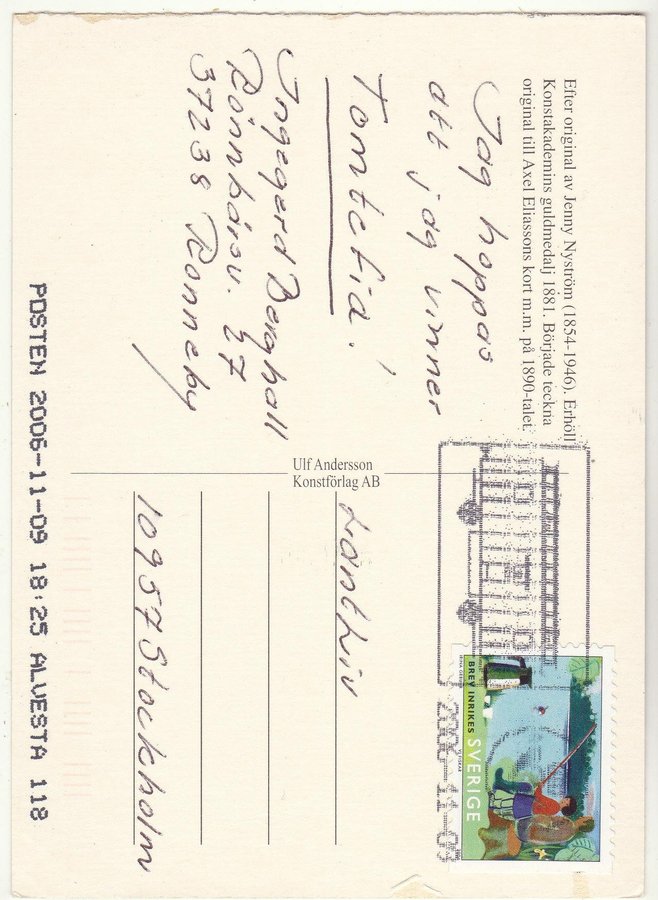 Efter original av Jenny Nyström (1854-1946). Erhöll
Konstakademins guldmedalj 1881. Började teckna
original till Axel Eliassons kort m.m. på 1890-talet.
Jag hoppas
att jag vinner
Tomtetid!
Ingegerd Berghall
Rönnbärsv. 37
37238 Ronneby
Ulf Andersson
Konstförlag AB
Lantliv
10957 Stockholm
BREV INRIKES SVERIGE
POSTEN 2006-11-09 18:25 ALVESTA 118